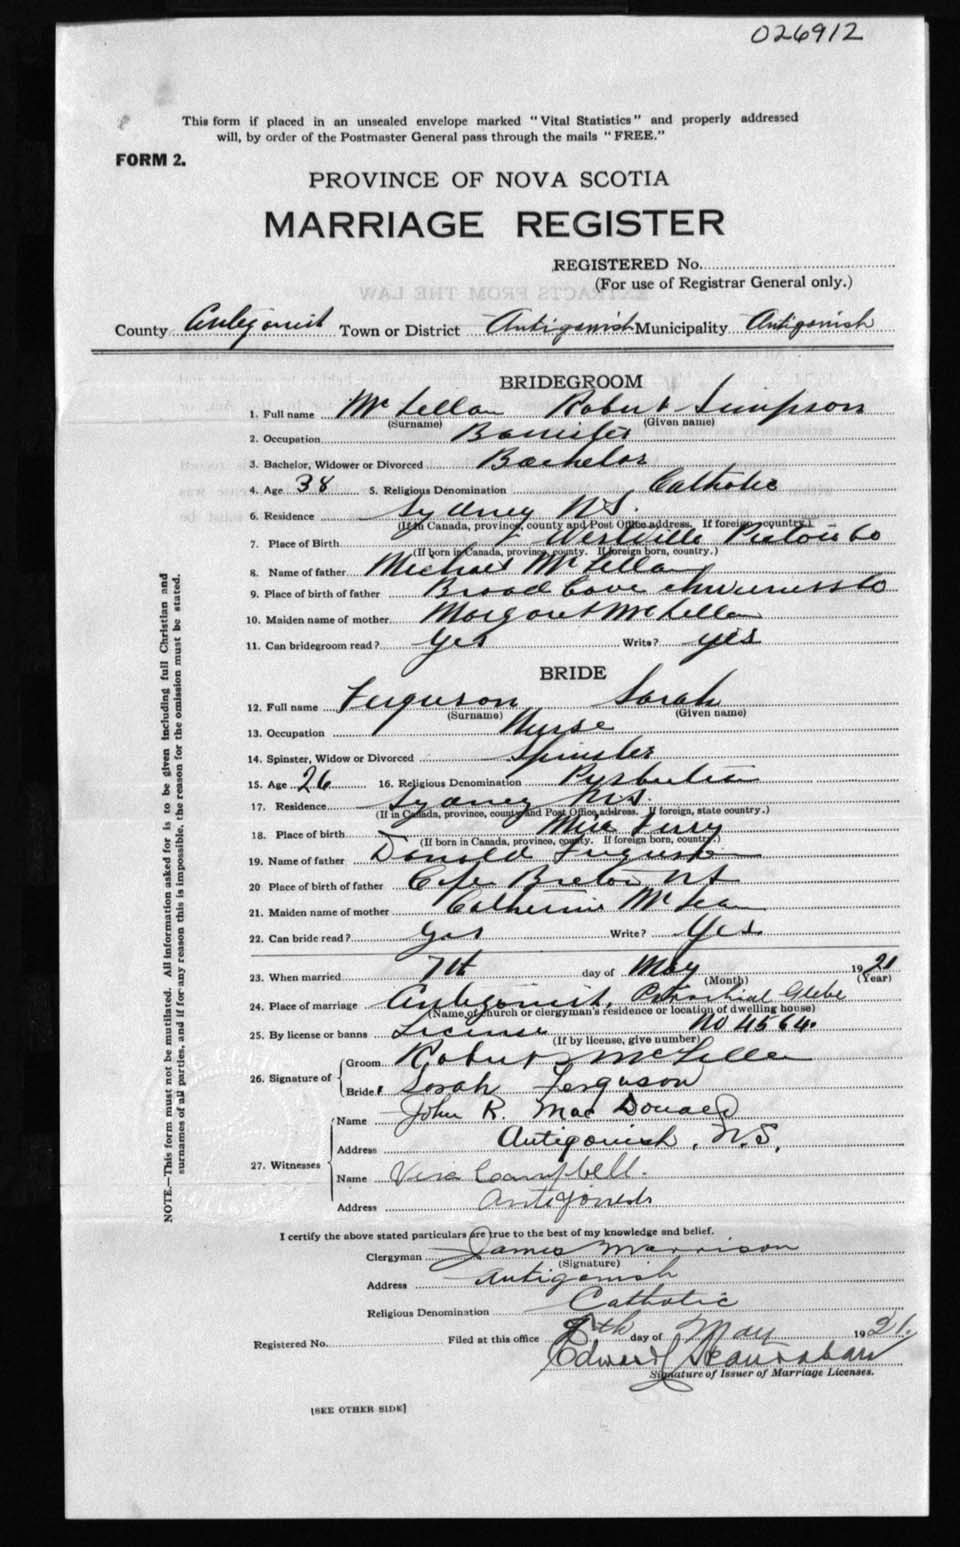 026912
This form if placed in an unsealed envelope marked "Vital Statistics" and properly addressed
will, by order of the Postmaster General pass through the mails "FREE."
FORM 2.
PROVINCE OF NOVA SCOTIA
MARRIAGE REGISTER
REGISTERED No.
(For use of Registrar General only.)
County Antigonish Town or District Antigonish Municipality Antigonish
BRIDEGROOM
1. Full name McLellan Robert Simpson
(Surname) (Given name)
2. Occupation Barrister
3. Bachelor, Widower or Divorced Bachelor
4. Age 38 5. Religious Denomination Catholic
6. Residence Sydney N.S.
(If in Canada, province, county and Post Office address. If foreign country.)
7. Place of Birth Westville Pictou Co
(If born in Canada, province, county. If foreign born, country.)
8. Name of father Michael McLellan
9. Place of birth of father Broad Cove Inverness Co
10. Maiden name of mother Margaret McLellan
11. Can bridegroom read? Yes Write? yes
BRIDE
12. Full name Ferguson Sarah
(Surname) (Given name)
13. Occupation Nurse
14. Spinster, Widow or Divorced Spinster
15. Age 26 16. Religious Denomination
17. Residence Sydney N.S.
(If in Canada, province, county and Post Office address. If foreign, state country.)
18. Place of birth Ferry
(If born in Canada, province, county. If foreign born, country.)
19. Name of father Donald Ferguson
20 Place of birth of father Cape Breton NS
21. Maiden name of mother Catherine McLean
22. Can bride read? Yes Write? Yes
23. When married 7th day of May 1921
(Month) (Year)
24. Place of marriage Antigonish, Parochial Glebe
(Name of church or clergyman's residence or location of dwelling house)
25. By license or banns License No 4564.
(If by license, give number)
26. Signature of Groom Robert McLellan
Bride Sarah Ferguson
27. Witnesses Name John R. MacDonald
Address Antigonish, N.S.
Name Vera Campbell.
Address Antigonish
I certify the above stated particulars are true to the best of my knowledge and belief.
Clergyman James Morrison
(Signature)
Address Antigonish
Religious Denomination Catholic
Registered No. Filed at this office 9th day of May 1921.
Edward
Signature of Issuer of Marriage Licenses.
[SEE OTHER SIDE]
NOTE.—This form must not be mutilated. All information asked for is to be given including full Christian and
surnames of all parties, and if for any reason this is impossible, the reason for the omission must be stated.